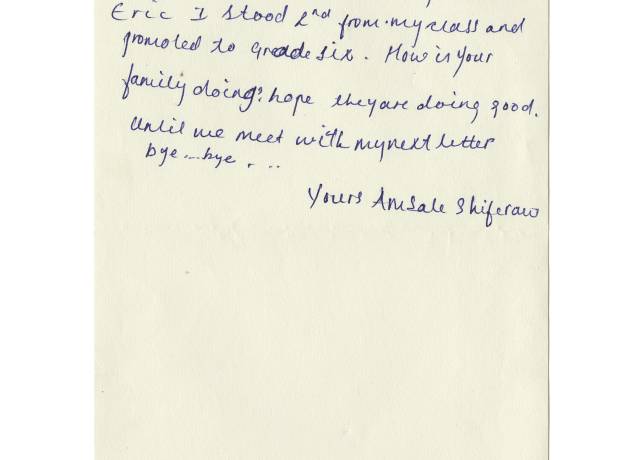 Eric I stood 2nd from my class and
promoted to Grade six. How is your
family doing? hope they are doing good.
Until we meet with my next letter
bye...bye...
Yours Amsale Shiferaw